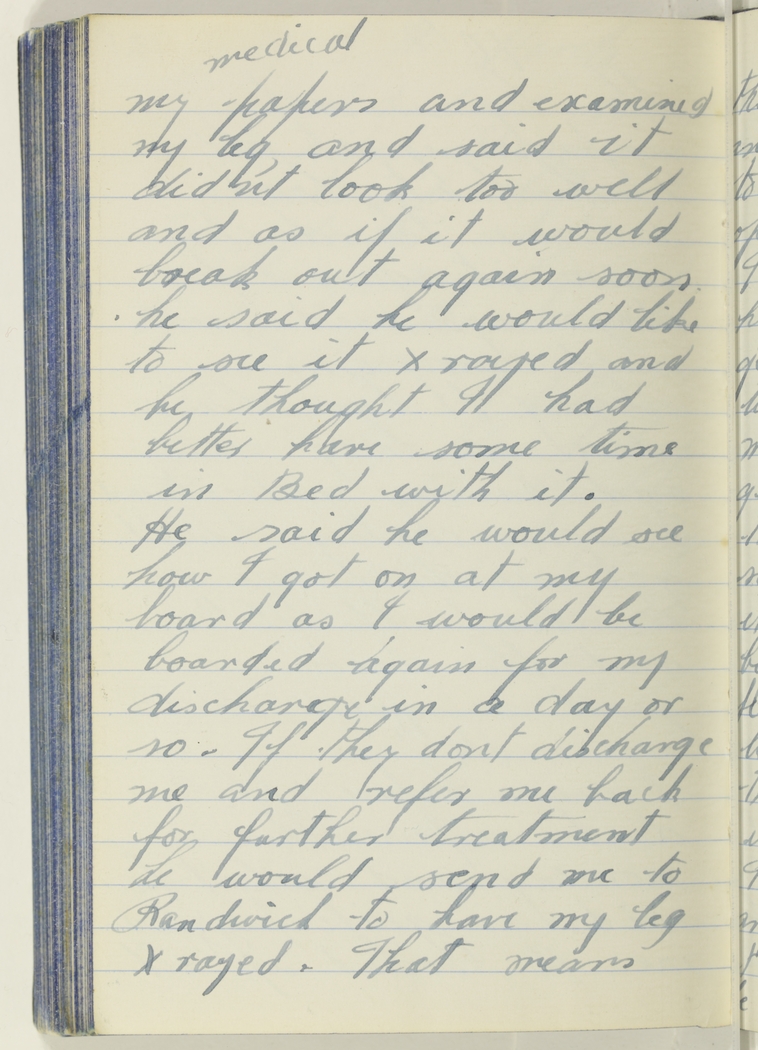 medical
my papers and examined
my leg and said it
didn't look too well
and as if it would
break out again soon.
he said he would like
to see it X rayed and
he thought I had
better have some time
in Bed with it.
He said he would see
how I got on at my
board as I would be
boarded again for my
discharge in a day or
so. If they dont discharge
me and refer me back
for further treatment
he would send me to
Randwick to have my leg
X rayed. That means